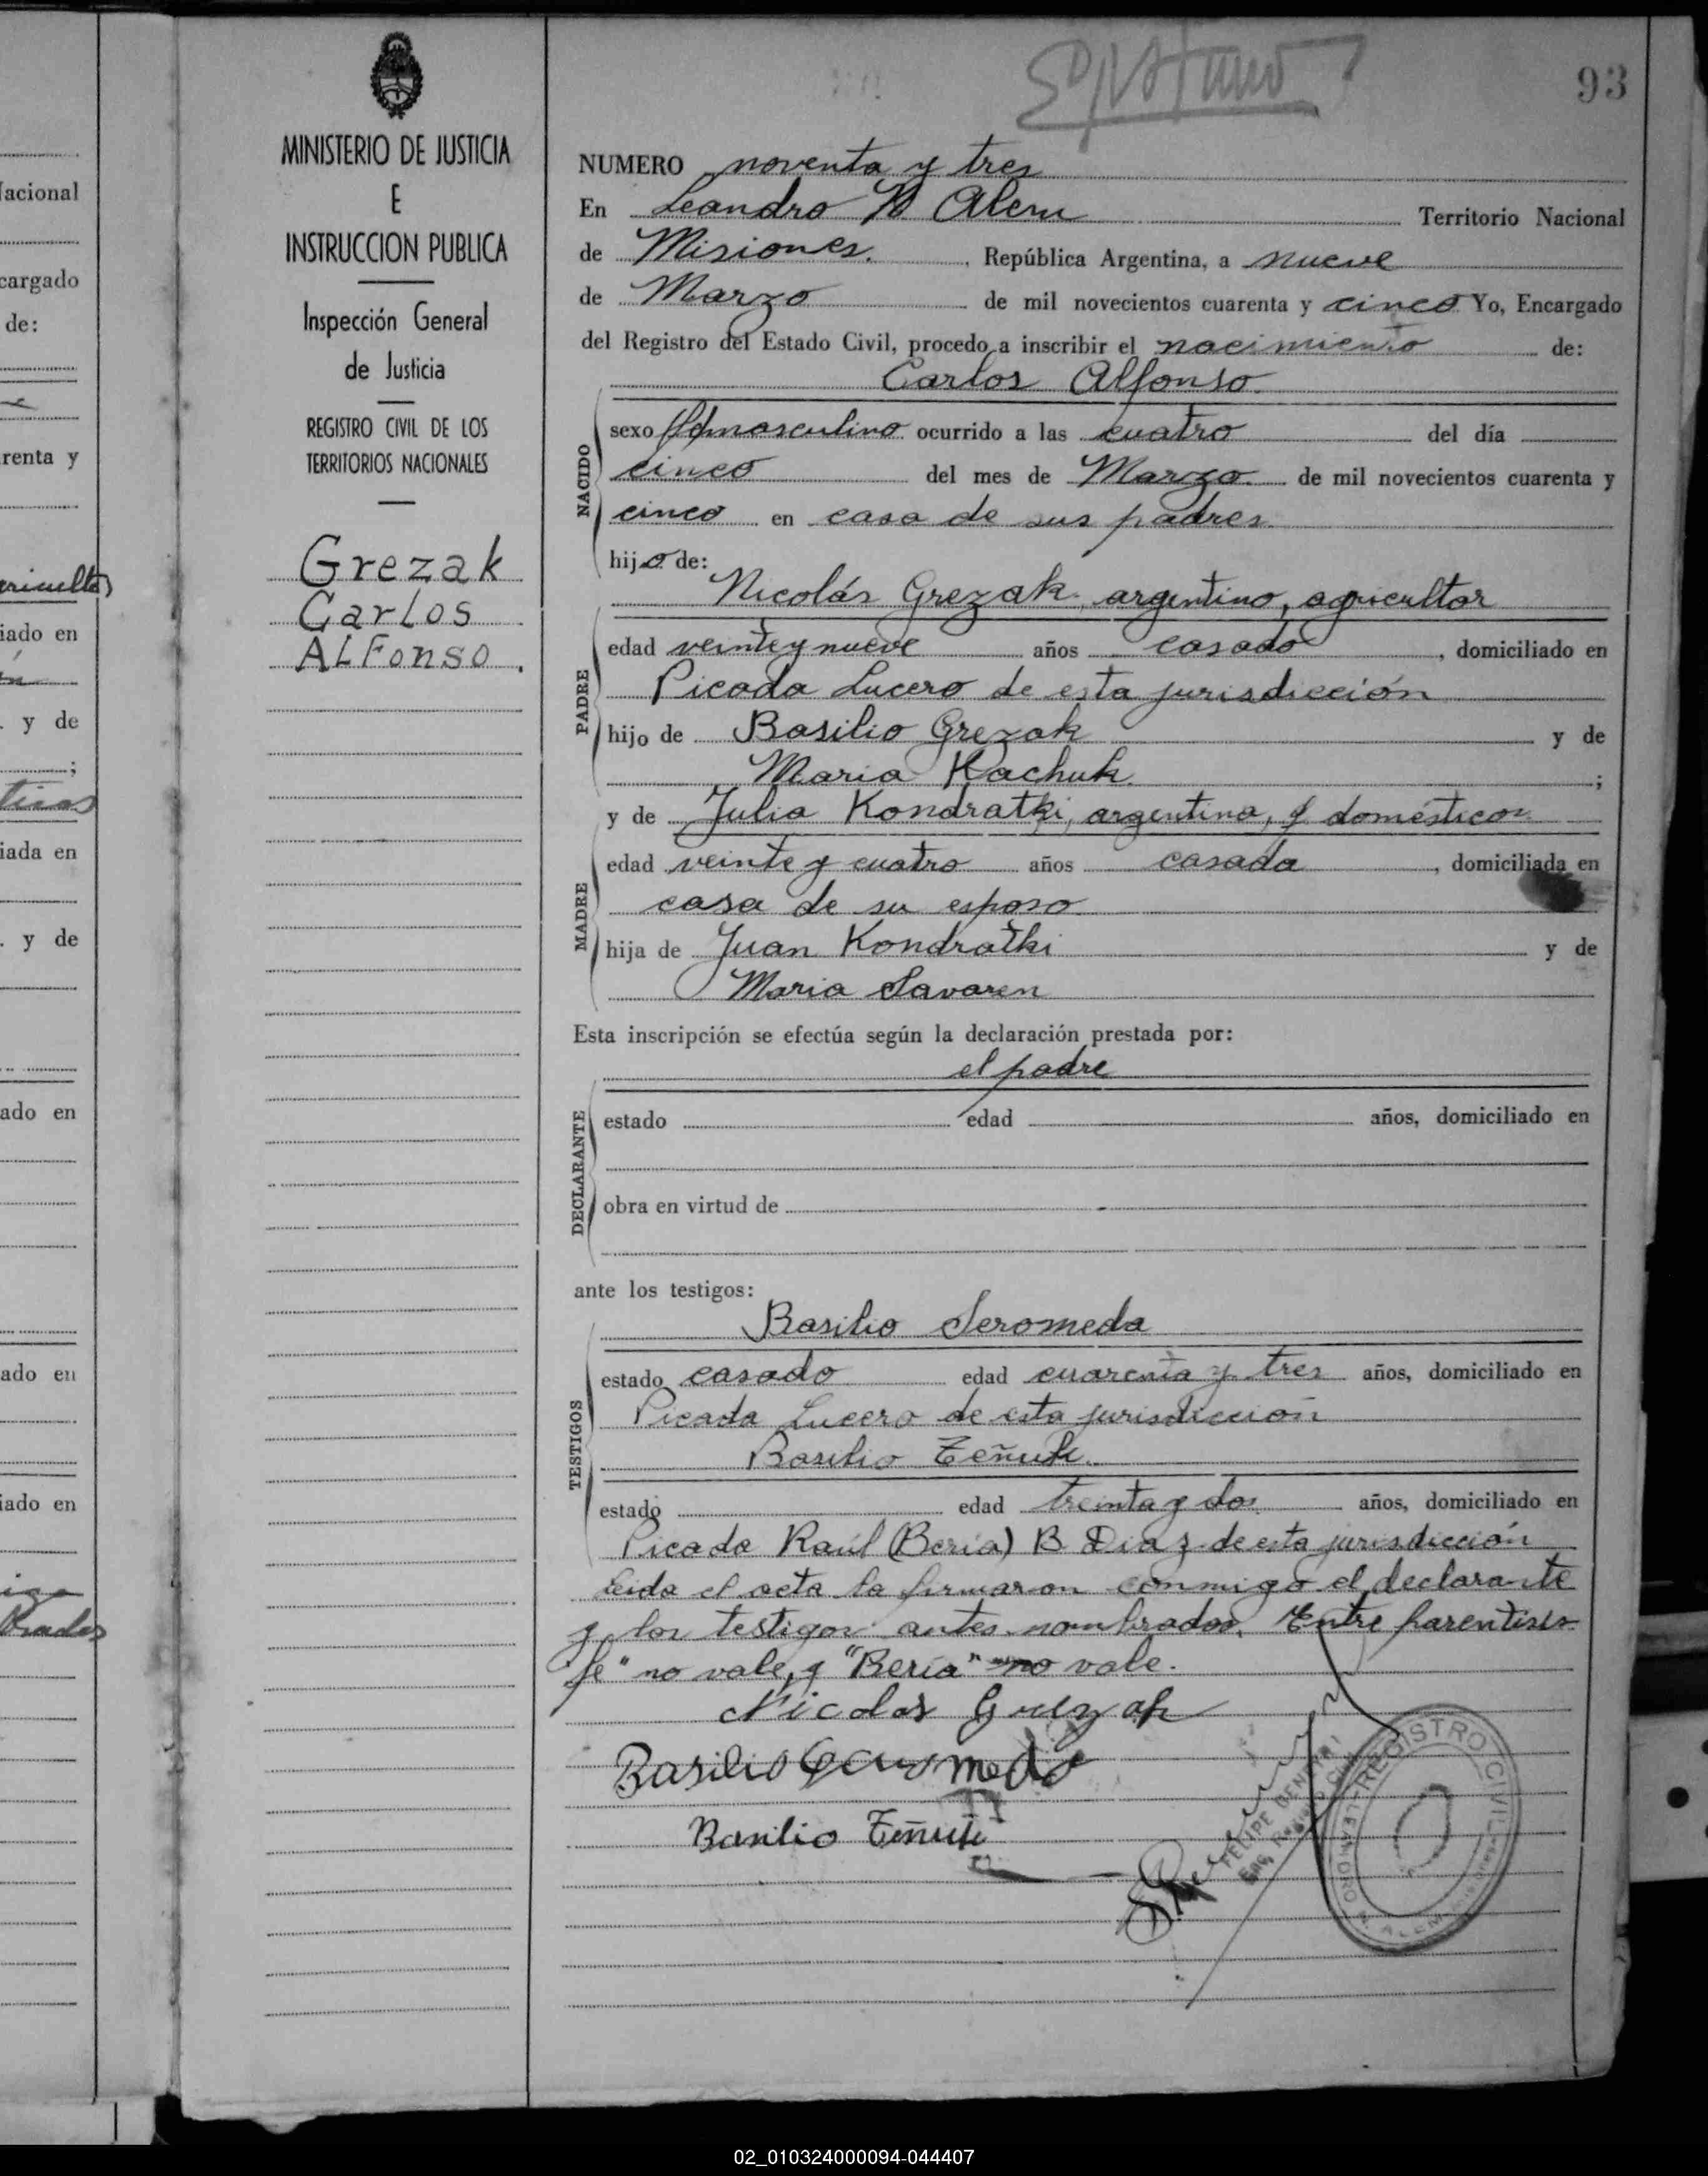 93
MINISTERIO DE JUSTICIA
E
INSTRUCCION PUBLICA
Inspección General
de Justicia
REGISTRO CIVIL DE LOS
TERRITORIOS NACIONALES
Grezak
Carlos
ALFonso.
NUMERO noventa y tres
En Leandro N Alem Territorio Nacional
de Misiones. República Argentina, a nueve
de Marzo de mil novecientos cuarenta y cinco Yo, Encargado
del Registro del Estado Civil, procedo a inscribir el nacimiento de:
Carlos Alfonso.
NACIDO
sexo masculino ocurrido a las cuatro del día
cinco del mes de Marzo de mil novecientos cuarenta y
cinco en casa de sus padres
hijo de:
Nicolás Grezak argentino, agricultor
PADRE
edad veinte y nueve años casado, domiciliado en
Picada Lucero de esta jurisdicción
hijo de Basilio Grezak y de
Maria Kachuk;
y de Julia Kondratki, argentina, q domésticos
MADRE
edad veinte y cuatro años casada, domiciliada en
casa de su esposo
hija de Juan Kondratki y de
Maria Savaren
Esta inscripción se efectúa según la declaración prestada por:
el padre
DECLARANTE
estado edad años, domiciliado en
obra en virtud de
ante los testigos:
Basilio Seromeda
TESTIGOS
estado casado edad cuarenta y tres años, domiciliado en
Picada Lucero de esta jurisdicción
Basilio Teñuk
estado edad treinta y dos años, domiciliado en
Picada Raúl (Beria) B Diaz de esta jurisdicción
Leida el acta la firmaron conmigo el declarante
y los testigos antes nombrados. Entre parentisis
"fe" no vale, y "Beria" no vale.
Nicolas Grezak
Basilio
Basilio Teñuk
FELIPE
REGISTRO CIVIL
02_010324000094-044407